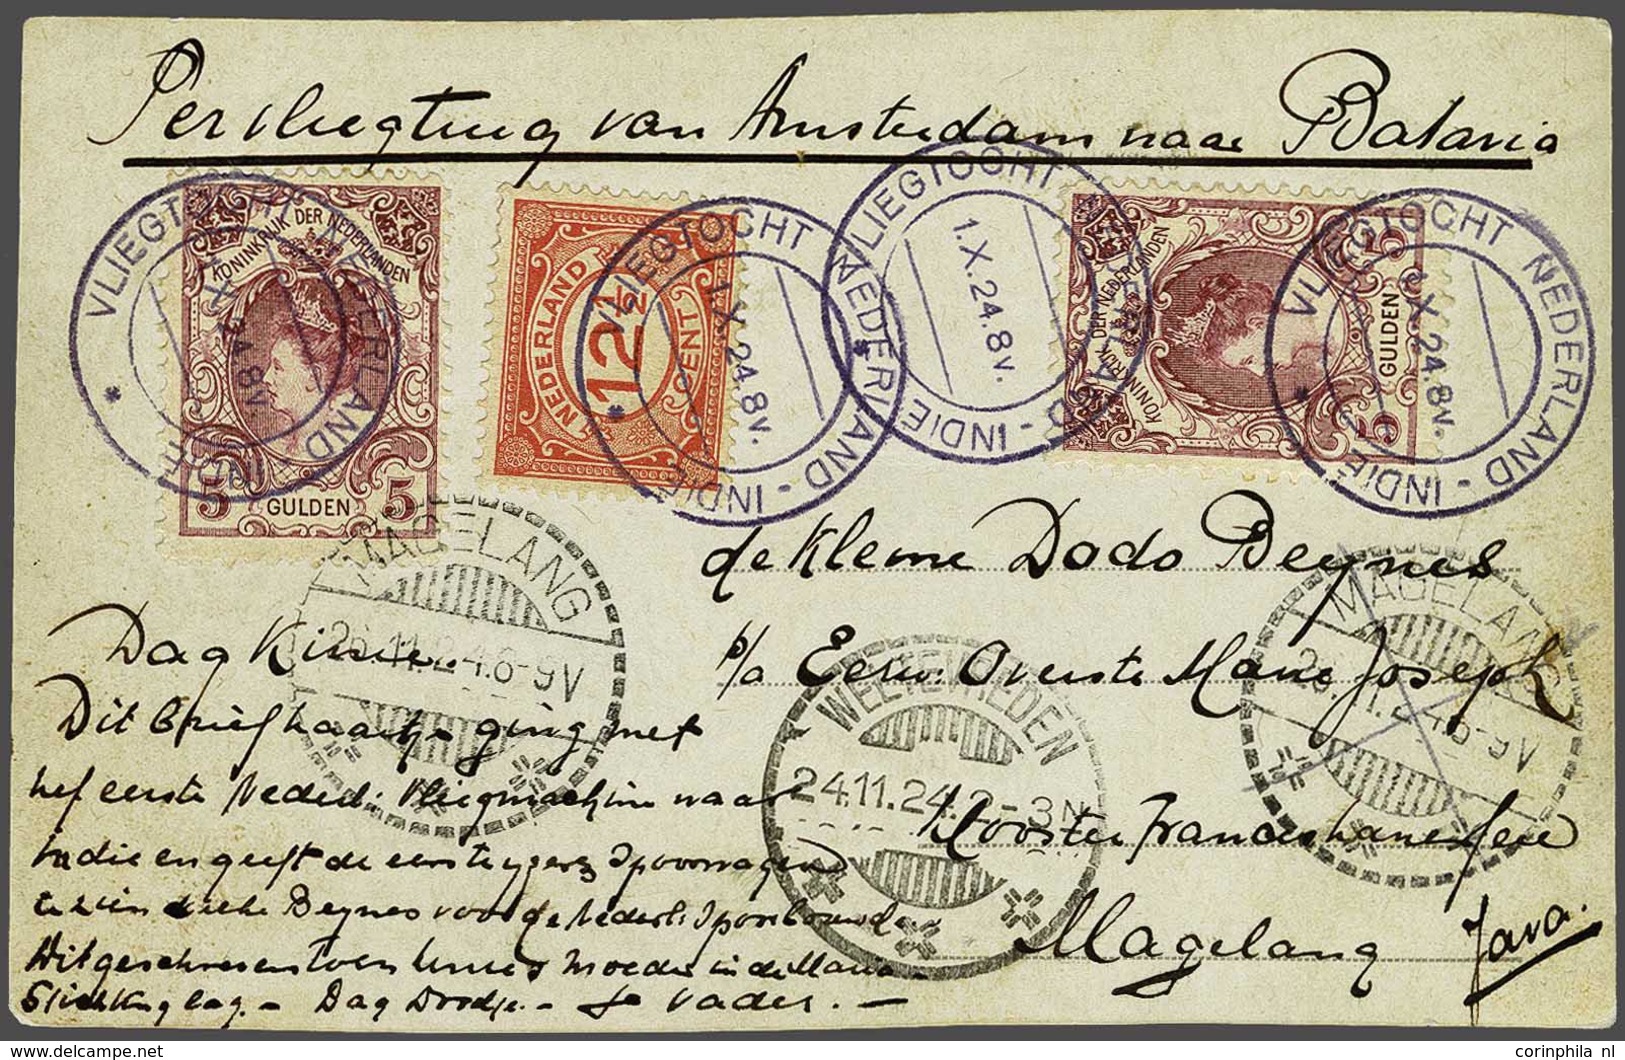 Per vliegtuig van Amsterdam naar Batavia
VLIEGTOCHT NEDERLAND - INDIE
1.X.24.8V.
KONINKRIJK DER NEDERLANDEN
5 GULDEN 5
NEDERLAND
12½
CENT
VLIEGTOCHT NEDERLAND - INDIE
1.X.24.8V.
VLIEGTOCHT NEDERLAND - INDIE
1.X.24.8V.
KONINKRIJK DER NEDERLANDEN
5 GULDEN 5
VLIEGTOCHT NEDERLAND - INDIE
1.X.24.8V.
de Kleine Dodo Beynes
p/a Eerw. Overste Marie Joseph
Klooster Franciskanessen
Magelang Java.
MAGELANG
26.11.24.6-9V
WELTEVREDEN
24.11.24.2-3N
MAGELANG
26.11.24.6-9V
Dag
Dit briefkaartje ging met
het eerste Nederl. vliegmachine naar
Indie en geeft de eerste ijzeren spoorwagen
te zien welke Beynes voor de Nederl. Spoor bouwde
Uitgeschreven toen Moeder in
Dag Dodje. - Je vader. -
corinphila nl